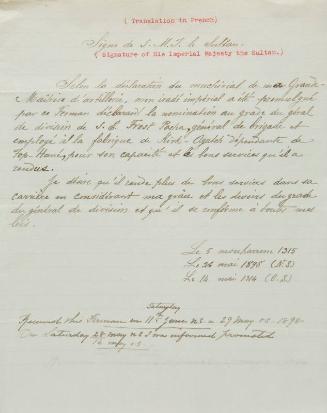 ( Translation in French)
Signe de S. M. I. le Sultan.
( Signature of His Imperial Majesty the Sultan.
Selon la déclaration du muchirial de ma Grande
Maîtrise d'artillerie, mon iradé impérial a été promulgué
par ce Firman déclarant la nomination au grade du géral
de division de S. E. Frost Pacha, général de brigade et
employé à la fabrique de Kirk-Agatch dépendante de
Top-Hané, pour son capacité et les bons services qu'il a
rendus.
Je désire qu'il rende plus de bons services dans sa
carrière en considérant ma grâce et les devoirs du grade
du général de division et qu'il se conforme à toutes mes
lois.
Le 5 mouharrem 1315
Le 26 mai 1898 (N.S)
Le 14 mai 1314 (O.S)
Saturday
Received this Firman on 11th June N.S = 29 May O.S. 1898
On Saturday 28 May N.S I was informed promoted
16 May O.S.